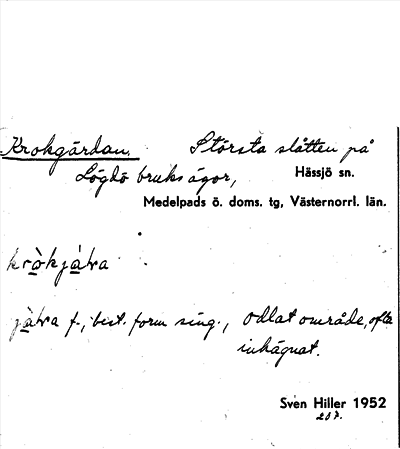 Krokgärdan. Största slåtten på
Lögdö bruks ägor, Hässjö sn.
Medelpads ö. doms. tg, Västernorrl. län.
krὰkjὰɩra
f., best. form sing., odlat område, ofta
inhägnat.
Sven Hiller 1952
207.